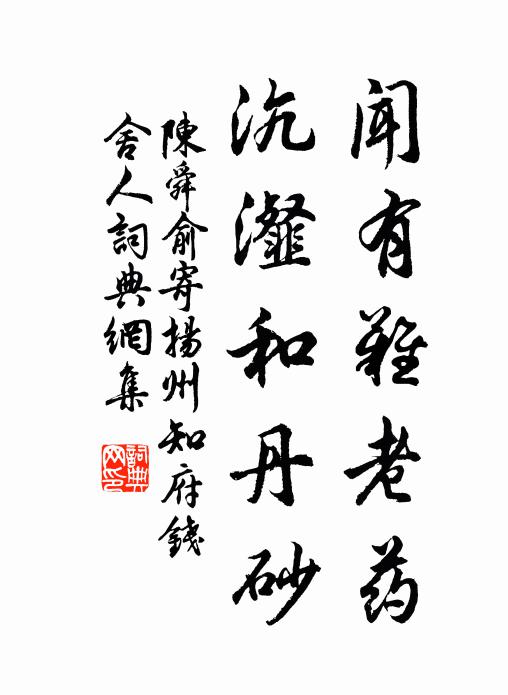 聞有難老药
沆瀣和丹砂
陳舜俞寄揚州知府錢
舍人詞典網集
詞典网印